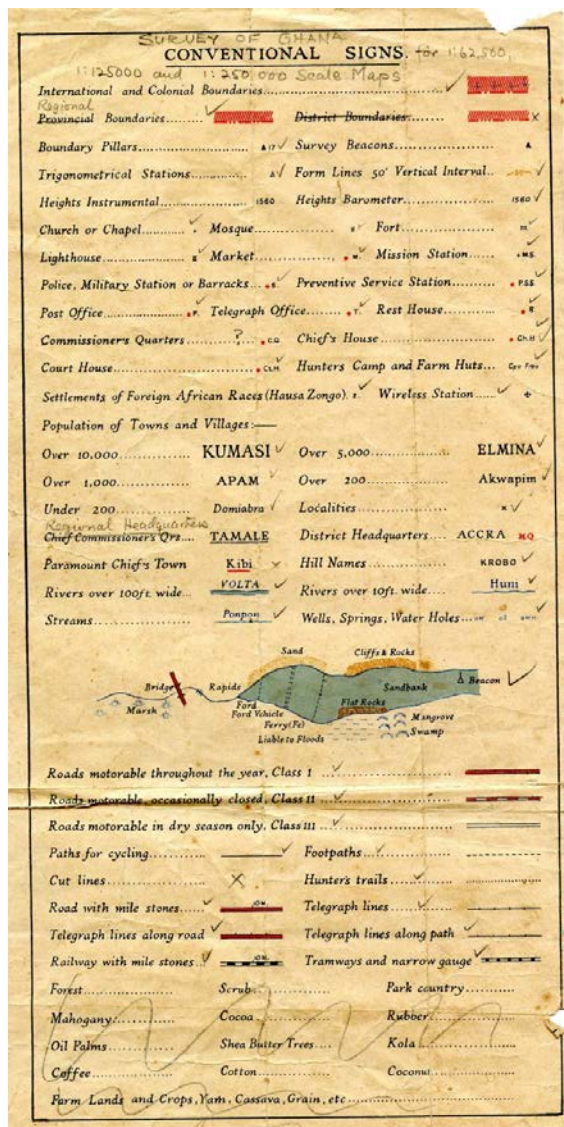 SURVEY OF GHANA
CONVENTIONAL SIGNS. for 1:62,500,
1:125000 and 1:250,000 Scale Maps
International and Colonial Boundaries
Regional
Provincial Boundaries District Boundaries: x
Boundary Pillars 17 Survey Beacons
Trigonometrical Stations Form Lines 50' Vertical Interval
Heights Instrumental 1560 Heights Barometer 1560
Church or Chapel Mosque Fort
Lighthouse Market M. Mission Station M.S.
Police, Military Station or Barracks Preventive Service Station P.S.S.
Post Office P. Telegraph Office T. Rest House R
Commissioner's Quarters ? C.Q. Chief's House Ch.H
Court House Ct.H. Hunters Camp and Farm Huts
Settlements of Foreign African Races (Hausa Zongo). z. Wireless Station
Population of Towns and Villages:—
Over 10,000 KUMASI Over 5,000 ELMINA
Over 1,000 APAM Over 200 Akwapim
Under 200 Domiabra Localities x
Regional Headquarters
Chief Commissioner's Qrs TAMALE District Headquarters ACCRA HQ
Paramount Chief's Town Kibi Hill Names KROBO
Rivers over 100ft. wide VOLTA Rivers over 10ft. wide Huni
Streams Ponpon Wells, Springs, Water Holes
Sand Cliffs & Rocks
Bridge Rapids Sandbank Beacon
Marsh Ford Flat Rocks
Ford Vehicle Mangrove
Ferry(Fe) Swamp
Liable to Floods
Roads motorable throughout the year, Class I
Roads motorable, occasionally closed, Class II
Roads motorable in dry season only, Class III
Paths for cycling Footpaths
Cut lines Hunter's trails
Road with mile stones 10M. Telegraph lines
Telegraph lines along road Telegraph lines along path
Railway with mile stones 10M. Tramways and narrow gauge
Forest Scrub Park country
Mahogany Cocoa Rubber
Oil Palms Shea Butter Trees Kola
Coffee Cotton Coconut
Farm Lands and Crops, Yam, Cassava, Grain, etc